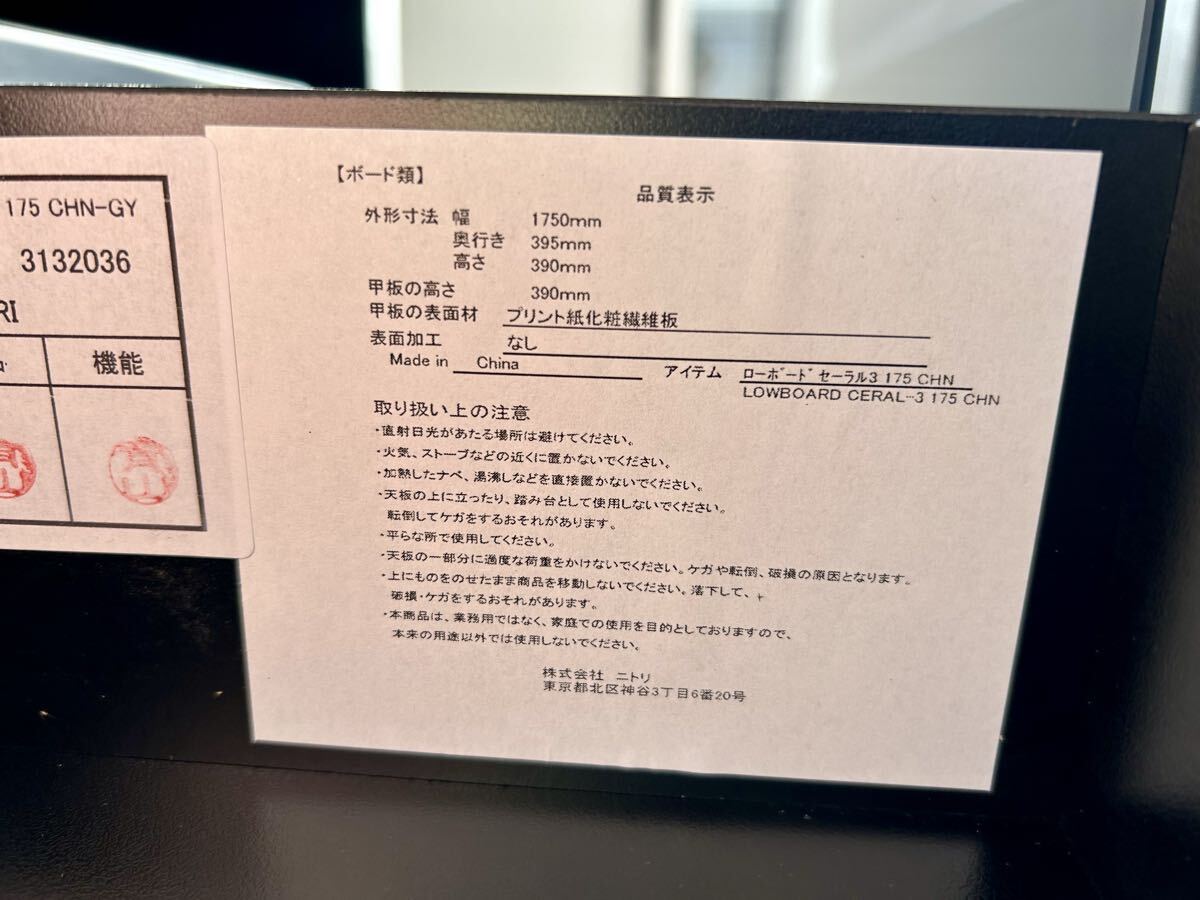 175 CHN-GY
3132036
RI
機能
【ボード類】
品質表示
外形寸法 幅 1750mm
奥行き 395mm
高さ 390mm
甲板の高さ 390mm
甲板の表面材 プリント紙化粧繊維板
表面加工 なし
Made in China
アイテム ローボード セーラル3 175 CHN
LOWBOARD CERAL-3 175 CHN
取り扱い上の注意
・直射日光があたる場所は避けてください。
・火気、ストーブなどの近くに置かないでください。
・加熱したナベ、湯沸しなどを直接置かないでください。
・天板の上に立ったり、踏み台として使用しないでください。
転倒してケガをするおそれがあります。
・平らな所で使用してください。
・天板の一部分に過度な荷重をかけないでください。ケガや転倒、破損の原因となります。
・上にものをのせたまま商品を移動しないでください。落下して、
破損・ケガをするおそれがあります。
・本商品は、業務用ではなく、家庭での使用を目的としておりますので、
本来の用途以外では使用しないでください。
株式会社 ニトリ
東京都北区神谷3丁目6番20号